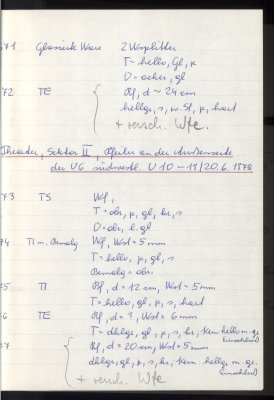 71 Glasierte Ware 2 Wsplitter
T = hello, gl, k
D = ocker, gl
72 TE Bf, d ~ 24 cm
hellge, s, w. St, k, hart
+ versch. Wfe.
Theater, Sektor II, Pfeiler an der Außenseite
der V6 südwestl. V10 – 11/20.6.1978
73 TS Wf,
T = obr, k, gl, br, s
D = obr, h. gl
74 TI m. Bemalg Wf, Wst = 5 mm
T = hello, k, gl, s
Bemalg = obr.
75 TI Bf, d = 12 cm, Wst = 5 mm
T = hello, gl, k, s, hart
76 TE Bf, d = ?, Wst = 6 mm
T = dklge, gl, k, s, br, Kern hello m. ge
Einschlüss
77 Bf, d = 20 cm, Wst = 5 mm
dklge, gl, k, s, br, Kern hellg m. ge.
Einschlüss
+ versch. Wfe